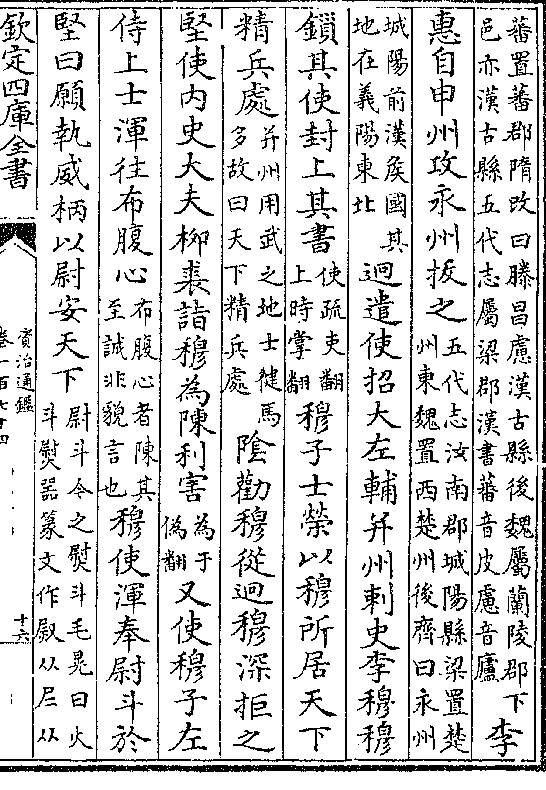 蕃置蕃郡隋改曰滕昌慮漢古縣後魏屬蘭陵郡下
邑亦漢古縣五代志屬梁郡漢書蕃音皮慮音廬
李
惠自申州攻永州拔之
五代志汝南郡城陽縣梁置楚
州東魏置西楚州後齊曰永州
城陽前漢侯國其
地在義陽東北
迥遣使招大左輔并州刺史李穆穆
鎖其使封上其書
使疏吏翻
上時掌翻
穆子士榮以穆所居天下
精兵處
并州用武之地士健馬
多故曰天下精兵處
陰勸穆從迥穆深拒之
堅使内史大夫栁裘詣穆為陳利害
為于
偽翻
又使穆子左
侍上士渾往布腹心
布腹心者陳其
至誠非貌言也
穆使渾奉尉斗於
堅曰願執威柄以尉安天下
尉斗今之熨斗毛晃曰火
斗熨器篆文作叞从𡰥从
欽定四庫全書
資治通鑑
卷一百七十四
十六